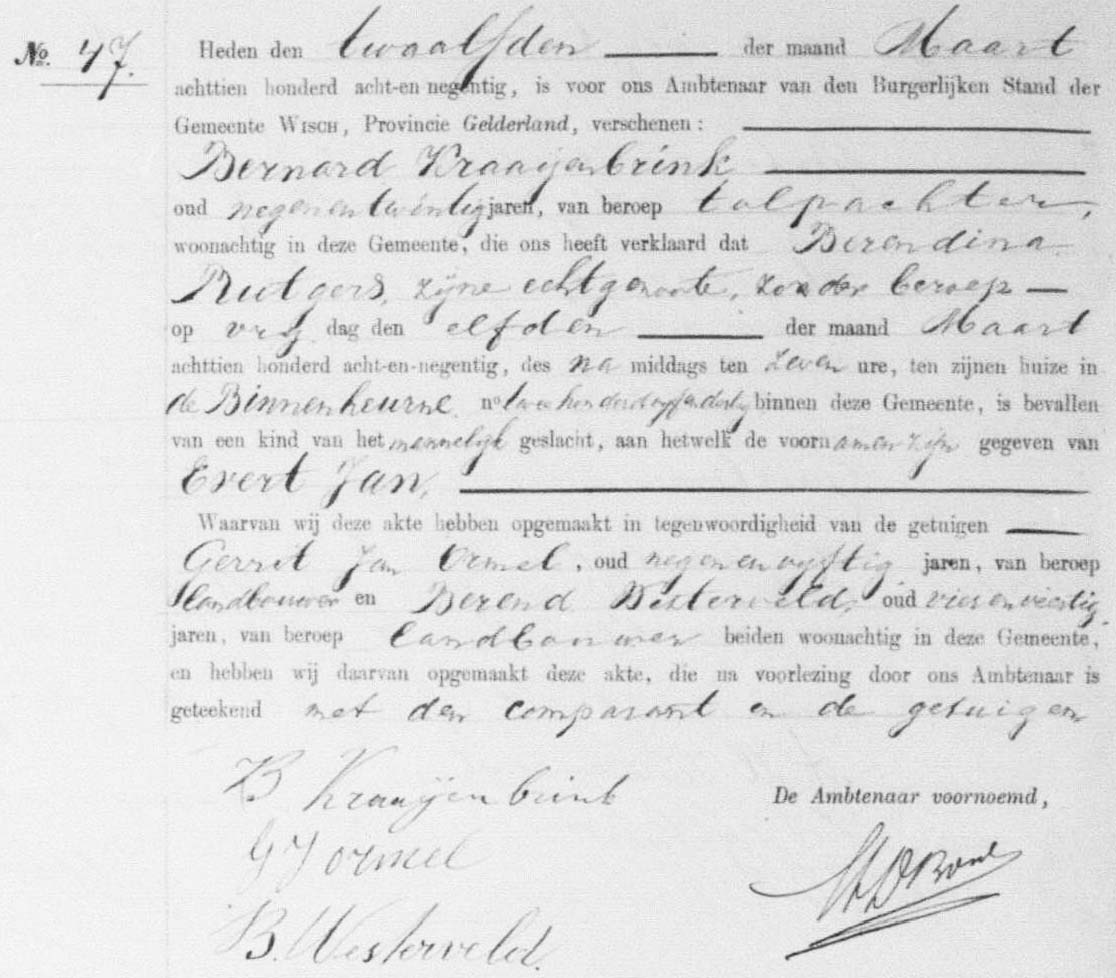 No. 47.
Heden den twaalfden der maand Maart
achttien honderd acht-en negentig, is voor ons Ambtenaar van den Burgerlijken Stand der
Gemeente WISCH, Provincie Gelderland, verschenen:
Bernard Kraaijenbrink
oud negenentwintig jaren, van beroep tolpachter,
woonachtig in deze Gemeente, die ons heeft verklaard dat Berendina
Rutgers, zijne echtgenoote, zonder beroep
op vrij dag den elfden der maand Maart
achttien honderd acht-en-negentig, des na middags ten zeven ure, ten zijnen huize in
de Binnenheurne no tweehonderdvijfendertig binnen deze Gemeente, is bevallen
van een kind van het mannelijk geslacht, aan hetwelk de voornamen zijn gegeven van
Evert Jan,
Waarvan wij deze akte hebben opgemaakt in tegenwoordigheid van de getuigen
Gerrit Jan Ormel, oud negenenvijftig jaren, van beroep
landbouwer en Berend Westerveld, oud vierenveertig
jaren, van beroep landbouwer beiden woonachtig in deze Gemeente,
en hebben wij daarvan opgemaakt deze akte, die na voorlezing door ons Ambtenaar is
geteekend met den comparant en de getuigen
B Kraaijenbrink
De Ambtenaar voornoemd,
G J Ormel
B. Westerveld.